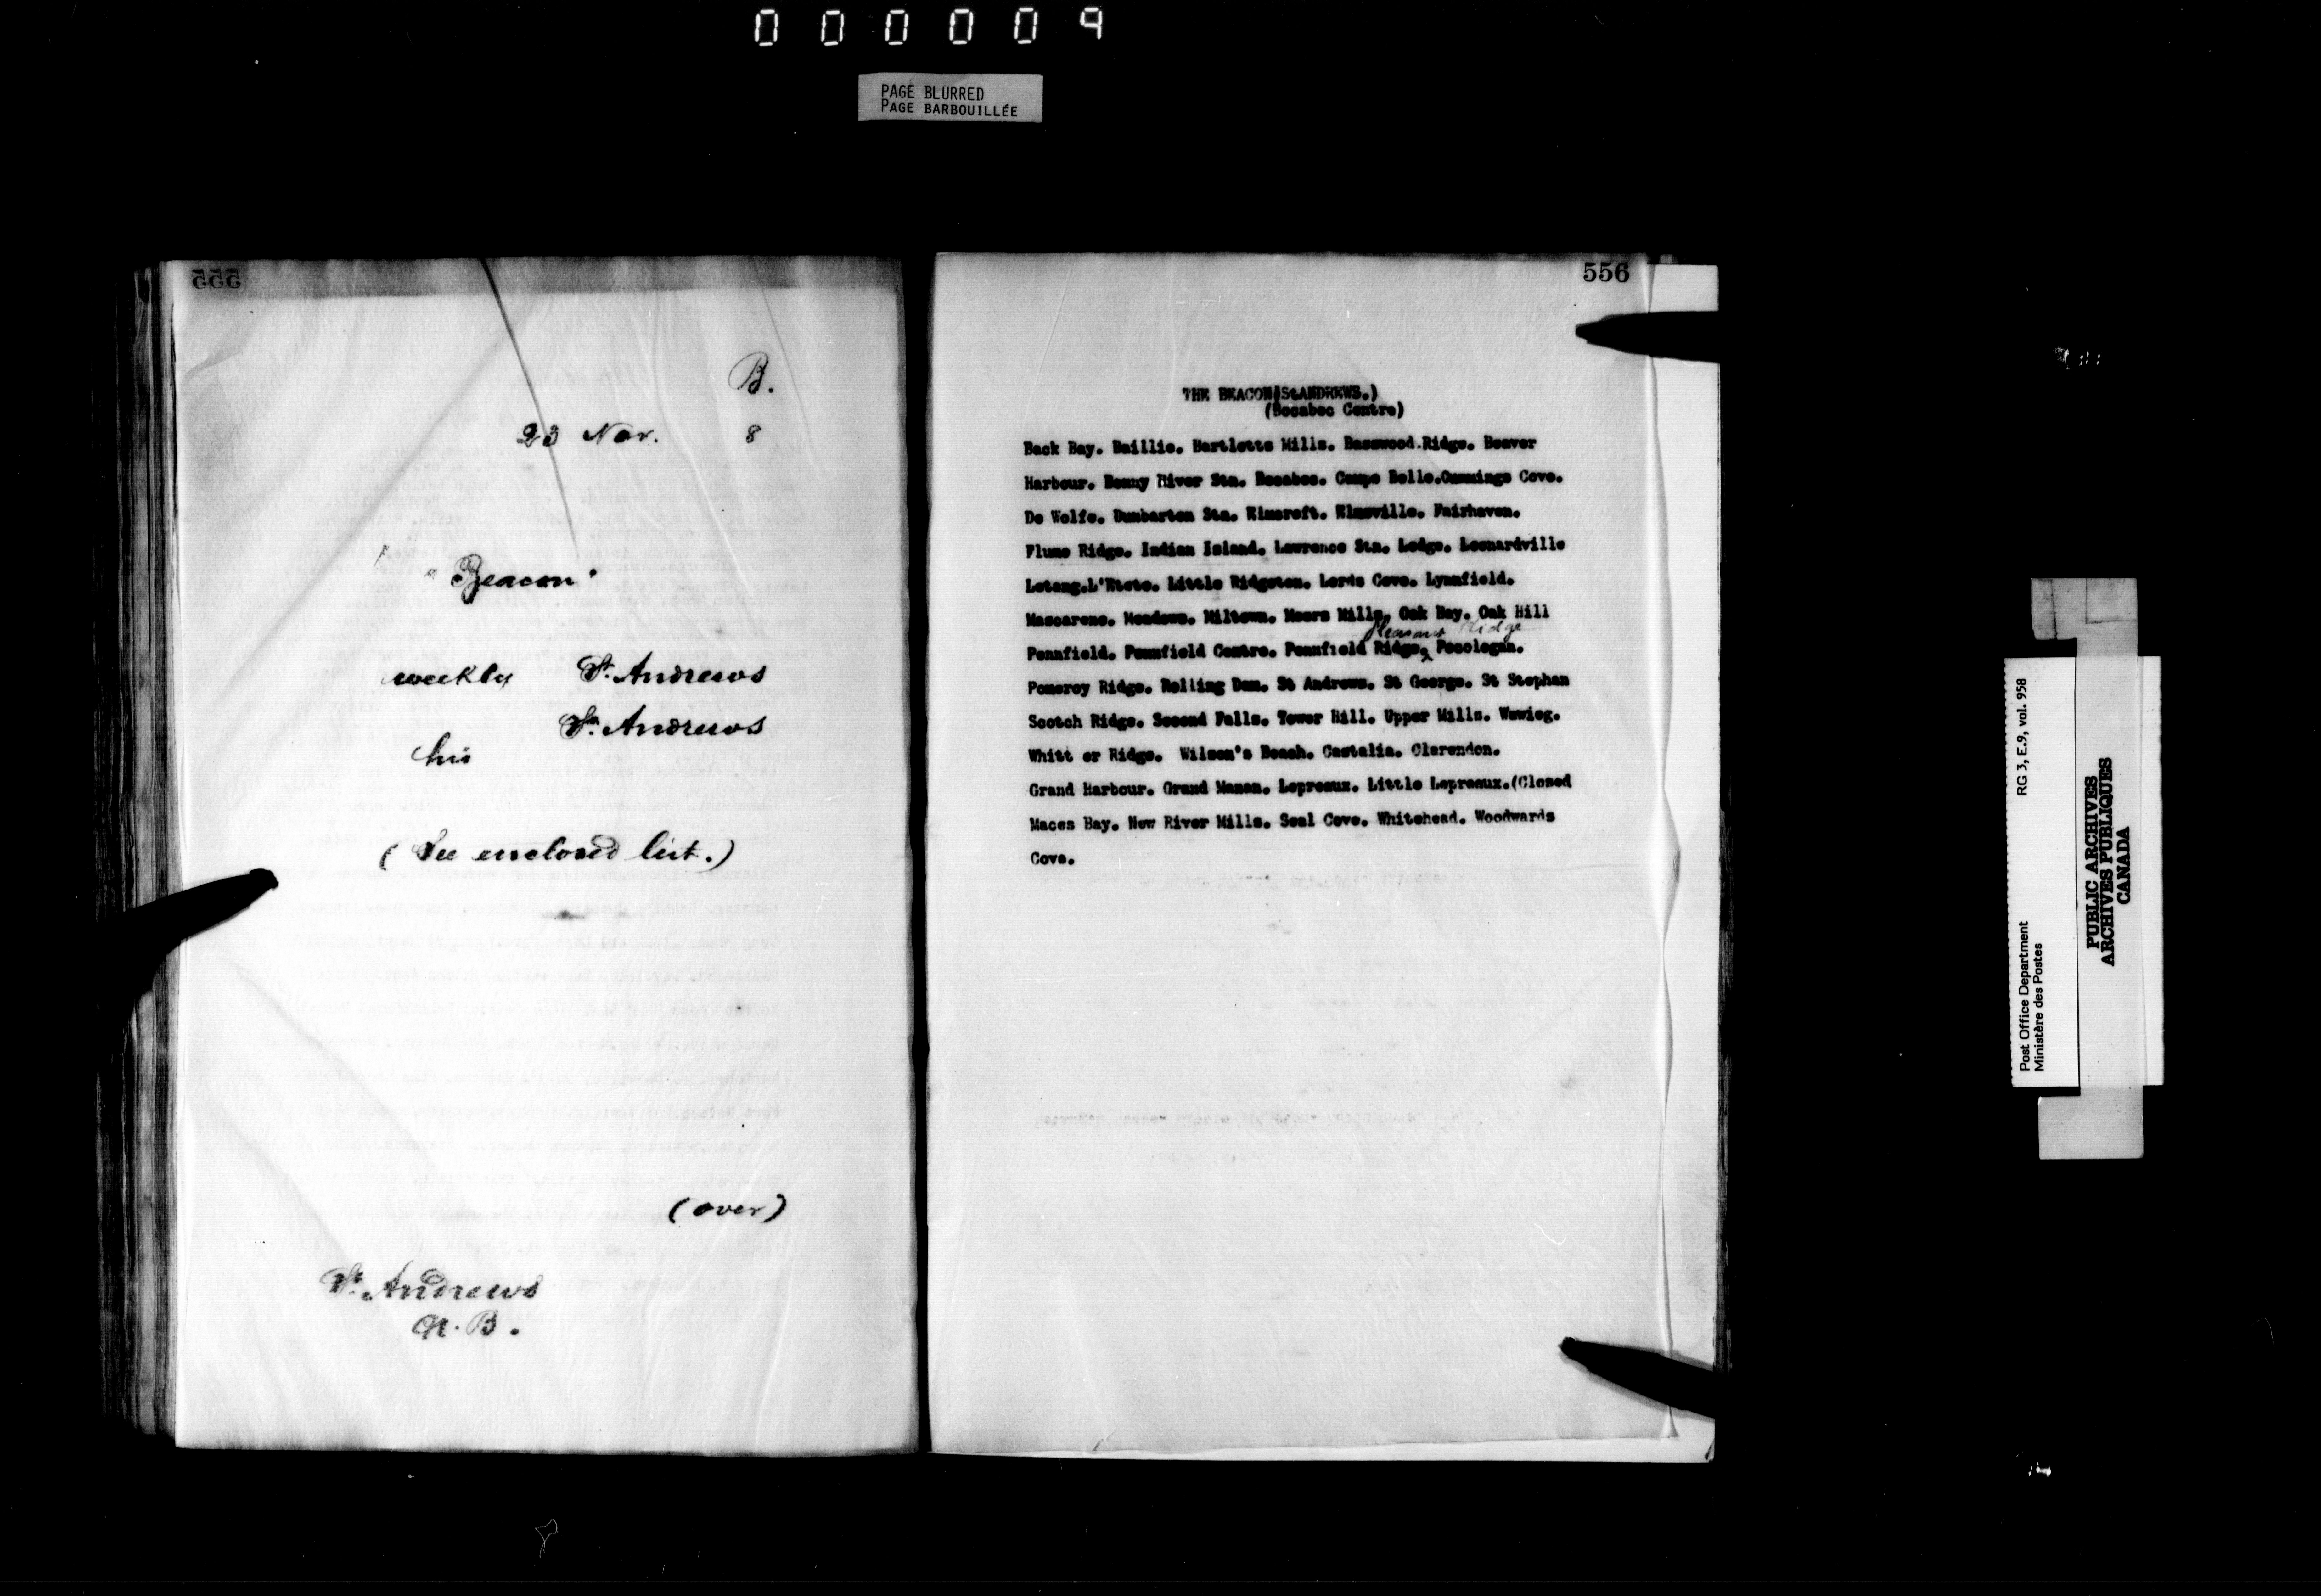 000009
PAGE BLURRED
PAGE BARBOUILLÉE
555
B.
23 Nov. 8
"Beacon"
weekly St. Andrews
St. Andrews
his
(See enclosed list.)
(over)
St. Andrews
N.B.
556
THE BEACON(StANDREWS.)
(Bocabec Centre)
Back Bay. Baillie. Bartletts Mills. Basswood.Ridge. Beaver
Harbour. Bonny River Stn. Bocabec. Campo Bello.Cummings Cove.
De Wolfe. Dumbarton Stn. Elmcroft. Elmsville. Fairhaven.
Flume Ridge. Indian Island. Lawrence Stn. Ledge. Leonardville
Letang.L'Etete. Little Ridgeton. Lords Cove. Lynnfield.
Mascarene. Meadows. Miltown. Moors Mills. Oak Bay. Oak Hill
Pleasant Ridge
Pennfield. Pennfield Centre. Pennfield Ridge. Pocologan.
Pomeroy Ridge. Rolling Dam. St Andrews. St George. St Stephan
Scotch Ridge. Second Falls. Tower Hill. Upper Mills. Waweig.
Whitt er Ridge. Wilson's Beach. Castalia. Clarendon.
Grand Harbour. Grand Manan. Lepreaux. Little Lepreaux.(Closed
Maces Bay. New River Mills. Seal Cove. Whitehead. Woodwards
Cove.
Post Office Department
Ministère des Postes
RG 3, E.9, vol. 958
PUBLIC ARCHIVES
ARCHIVES PUBLIQUES
CANADA